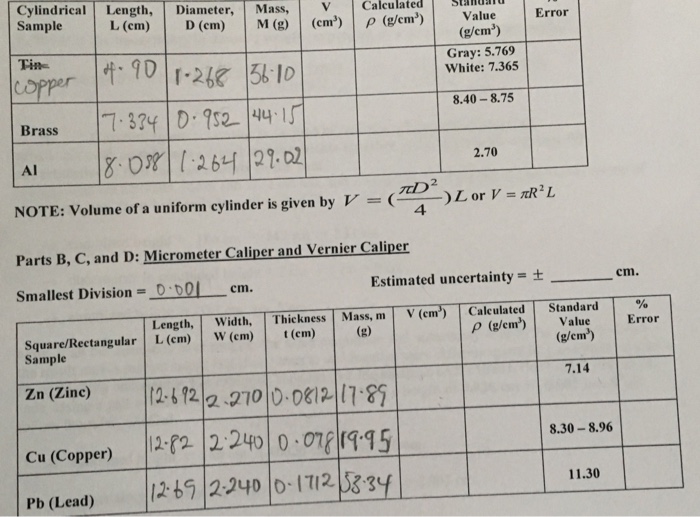 Cylindrical Sample | Length, L (cm) | Diameter, D (cm) | Mass, M (g) | V (cm³) | Calculated ρ (g/cm³) | Standard Value (g/cm³) | Error
Tin Copper | 4.90 | 1.268 | 56.10 | | | Gray: 5.769 White: 7.365 |
Brass | 7.334 | 0.952 | 44.15 | | | 8.40 – 8.75 |
Al | 8.038 | 1.264 | 29.02 | | | 2.70 |
NOTE: Volume of a uniform cylinder is given by V = (πD²/4)L or V = πR²L
Parts B, C, and D: Micrometer Caliper and Vernier Caliper
Smallest Division = 0.001 cm. Estimated uncertainty = ± ______ cm.
Square/Rectangular Sample | Length, L (cm) | Width, W (cm) | Thickness t (cm) | Mass, m (g) | V (cm³) | Calculated ρ (g/cm³) | Standard Value (g/cm³) | % Error
Zn (Zinc) | 12.692 | 2.270 | 0.0812 | 17.89 | | | 7.14 |
Cu (Copper) | 12.82 | 2.240 | 0.078 | 19.95 | | | 8.30 – 8.96 |
Pb (Lead) | 12.69 | 2.240 | 0.1712 | 58.34 | | | 11.30 |